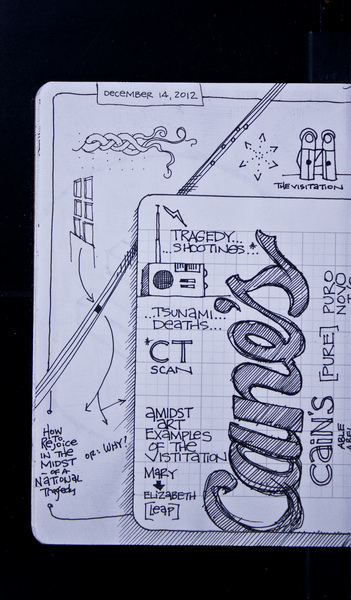 DECEMBER 14, 2012
THE VISITATION
TRAGEDY...
SHOOTINGS...*
...TSUNAMI
DEATHS...
*CT
SCAN
AMIDST
ART
EXAMPLES
OF THE
VISITATION
MARY
ELIZABETH
[LEAP]
HOW
TO
REJOICE
IN THE
MIDST
OF A
NATIONAL
Tragedy
OR: WHY?
Cain's
CAIN'S [PURE] PURO
ABLE